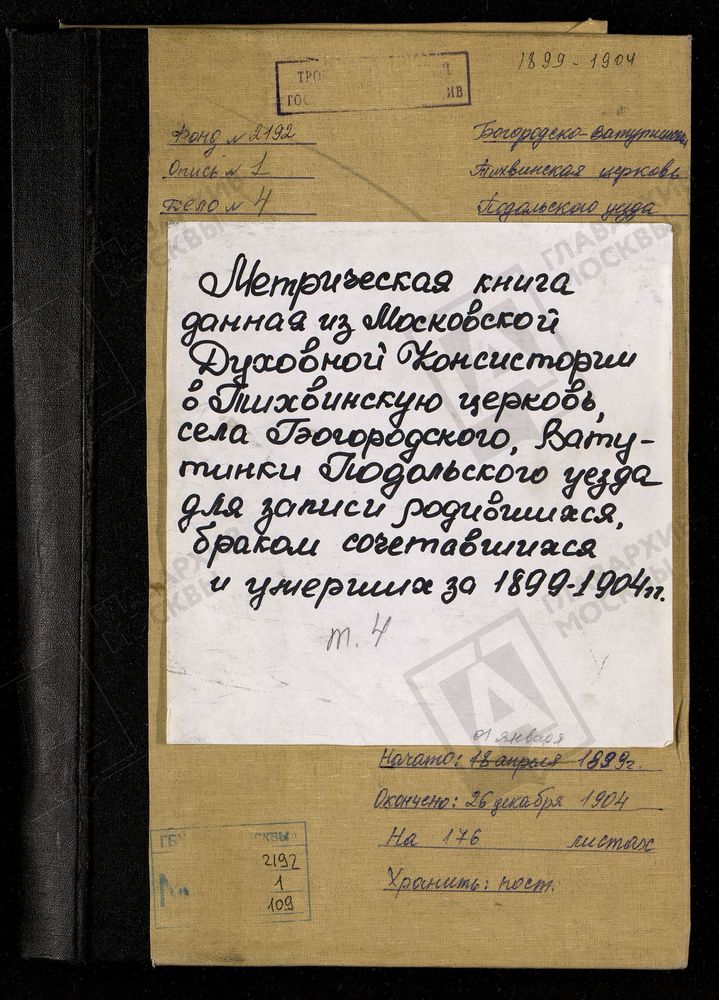 1899-1904
Фонд № 2192
Опись № 1
Дело № 4
Богородско-Ватутинская
Тихвинская церковь
Подольского уезда
Метрическая книга
данная из Московской
Духовной Консистории
в Тихвинскую церковь,
села Богородского, Вату-
тинки Подольского уезда
для записи родившихся,
браком сочетавшихся
и умерших за 1899-1904гг.
т. 4
01 января
Начато: 18 апреля 1899г.
Окончено: 26 декабря 1904
На 176 листах
Хранить: пост.
2192
1
109
ГЛАВАРХИВ
МОСКВЫ
ГЛАВАРХИВ
МОСКВЫ
ГЛАВАРХИВ
МОСКВЫ
ГЛАВАРХИВ
МОСКВЫ